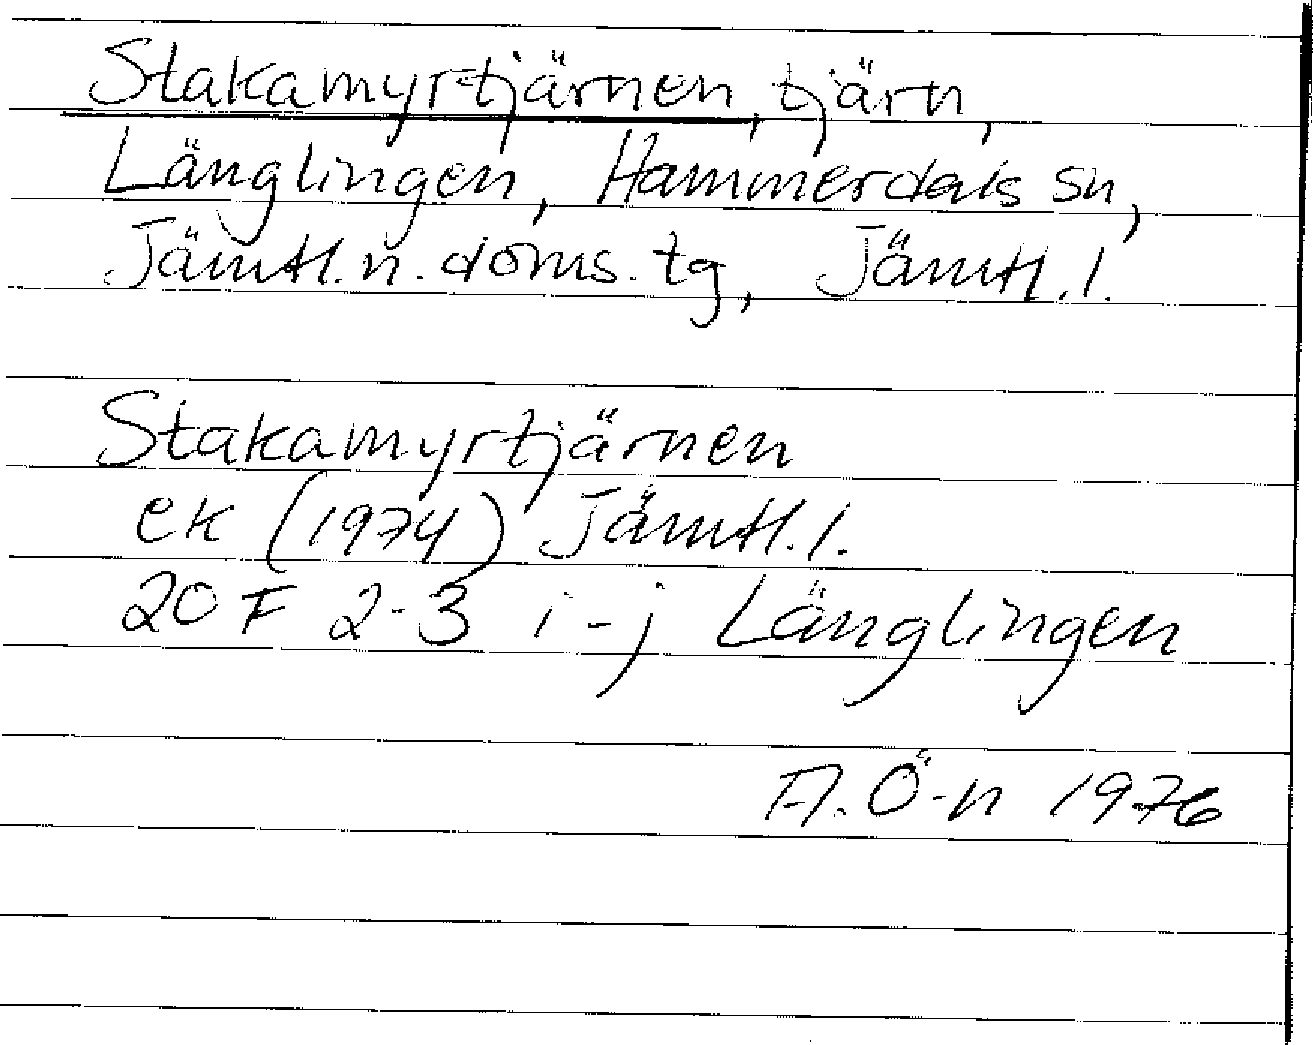 Stakamyrtjärnen, tjärn,
Länglingen, Hammerdals sn,
Jämtl.n. doms. tg, Jämtl.l.
Stakamyrtjärnen
ek (1974) Jämtl.l.
20 F 2-3 i-j Länglingen
A. Ö-n 1976